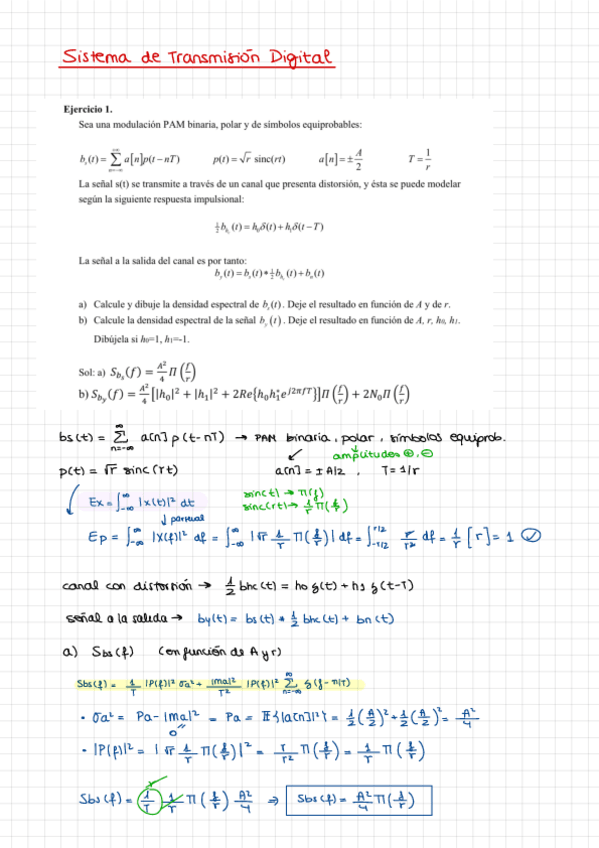 Sistema de Transmisión Digital
Ejercicio 1.
Sea una modulación PAM binaria, polar y de símbolos equiprobables:
b_s(t) = ∑_{n=-∞}^{+∞} a[n]p(t−nT)    p(t) = √r sinc(rt)    a[n] = ± A/2    T = 1/r
La señal s(t) se transmite a través de un canal que presenta distorsión, y ésta se puede modelar
según la siguiente respuesta impulsional:
½ b_{h_c}(t) = h₀δ(t) + h₁δ(t−T)
La señal a la salida del canal es por tanto:
b_y(t) = b_s(t) * ½ b_{h_c}(t) + b_n(t)
a) Calcule y dibuje la densidad espectral de b_s(t). Deje el resultado en función de A y de r.
b) Calcule la densidad espectral de la señal b_y(t). Deje el resultado en función de A, r, h₀, h₁.
Dibújela si h₀=1, h₁=-1.
Sol: a) S_{b_s}(f) = A²/4 Π(f/r)
b) S_{b_y}(f) = A²/4 [|h₀|² + |h₁|² + 2Re{h₀h₁*e^{j2πfT}}]Π(f/r) + 2N₀Π(f/r)
bs(t) = ∑_{n=-∞}^{∞} a[n] p(t-nT) → PAM binaria, polar, símbolos equiprob.
amplitudes ⊕, ⊖
p(t) = √r sinc(rt)    a[n] = ± A/2 ,    T = 1/r
Ex = ∫_{-∞}^{∞} |x(t)|² dt
sinc(t) → Π(f)
sinc(rt) → 1/r Π(f/r)
↓ parseval
Ep = ∫_{-∞}^{∞} |X(f)|² df = ∫_{-∞}^{∞} |√r 1/r Π(f/r)| df = ∫_{-r/2}^{r/2} r/r² df = 1/r [r] = 1 ✓
canal con distorsión → 1/2 bhc(t) = h0 δ(t) + h1 δ(t-T)
señal a la salida → by(t) = bs(t) * 1/2 bhc(t) + bn(t)
a) Sbs(f)    (en función de A y r)
Sbs(f) = 1/T |P(f)|² σa² + |ma|²/T² |P(f)|² ∑_{n=-∞}^{∞} δ(f - n/T)
• σa² = Pa - |ma|² = Pa = E{|a[n]|²} = 1/2 (A/2)² + 1/2 (A/2)² = A²/4
0
• |P(f)|² = |√r 1/r Π(f/r)|² = r/r² Π(f/r) = 1/r Π(f/r)
r
Sbs(f) = 1/T 1/r Π(f/r) A²/4 ⇒ Sbs(f) = A²/4 Π(f/r)